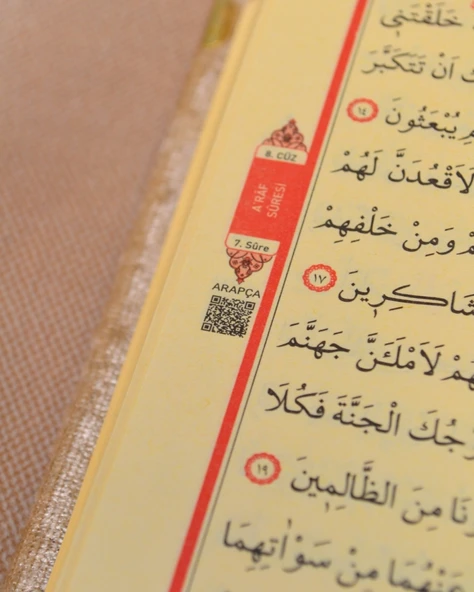 خَلَقْتَنٖي
اَنْ تَتَكَبَّرَ
يُبْعَثُونَ ١٤
لَاَقْعُدَنَّ لَهُمْ
وَمِنْ خَلْفِهِمْ
شَاكِرٖينَ ١٧
هُمْ لَاَمْلَـَٔنَّ جَهَنَّمَ
جُكَ الْجَنَّةَ فَكُلَا
نَا مِنَ الظَّالِمٖينَ ١٩
عَنْهُمَا مِنْ سَوْاٰتِهِمَا
8. CÜZ
A'RÂF
SÛRESİ
7. Sûre
ARAPÇA